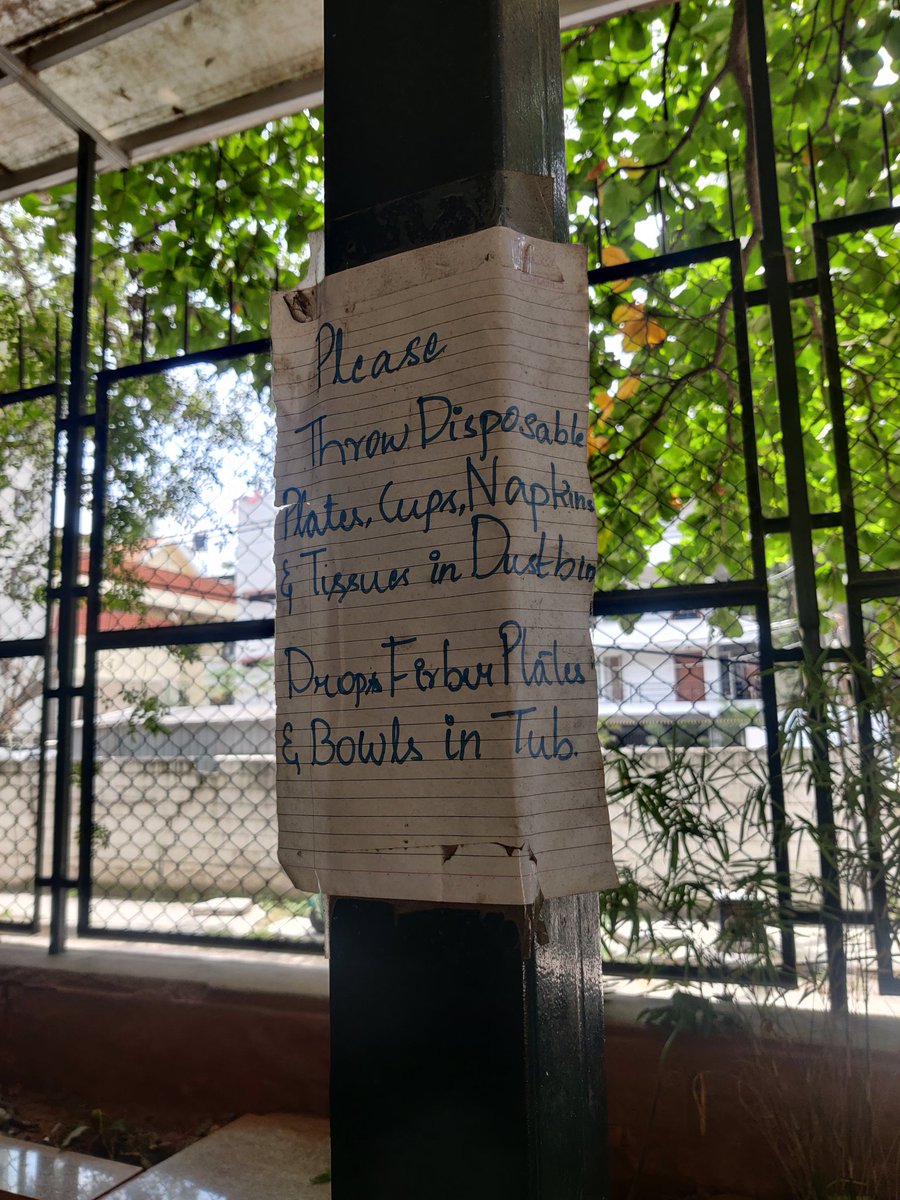 Please
Throw Disposable
Plates, Cups, Napkins
& Tissues in Dustbin
Drops Firber Plates
& Bowls in Tub.